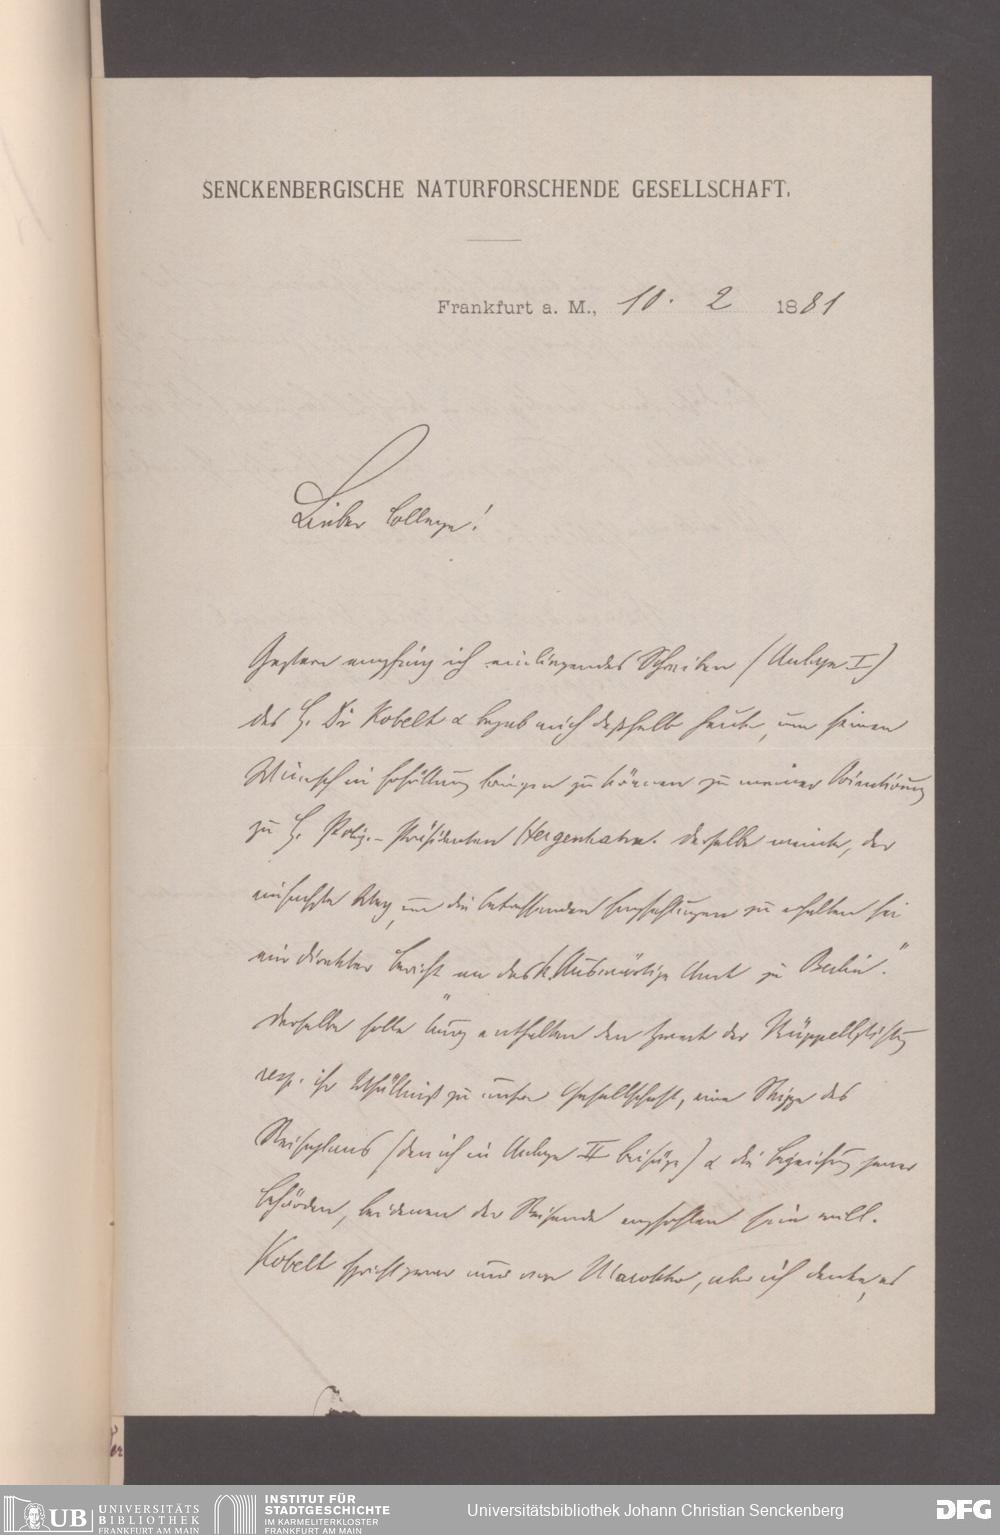 SENCKENBERGISCHE NATURFORSCHENDE GESELLSCHAFT.
Frankfurt a. M., 10. 2 1881
Lieber College!
Gestern empfing ich einliegendes Schreiben (Anlage I)
des H. Dr Kobelt & begab mich deßhalb heute, um seinen
Wunsch in Erfüllung bringen zu können zu meiner Orientirung
zu H. Poliz.-Präsidenten Hergenhahn. Derselbe meinte, der
einfachste Weg, um die betreffenden Empfehlungen zu erhalten sei
ein direkter Bericht an das k. Auswärtige Amt zu Berlin."
Derselbe solle enthalten den Zweck der Rüppellstiftg
resp. ihr Verhältniß zu unsrer Gesellschaft, eine Skizze des
Reiseplans (den ich in Anlage II beifüge) & die Bezeichng jener
Behörden, bei denen der Reisende empfohlen sein will.
Kobelt spricht zwar nur von Marokko, aber ich denke, es
UB UNIVERSITÄTS
BIBLIOTHEK
FRANKFURT AM MAIN
INSTITUT FÜR
STADTGESCHICHTE
IM KARMELITERKLOSTER
FRANKFURT AM MAIN
Universitätsbibliothek Johann Christian Senckenberg
DFG